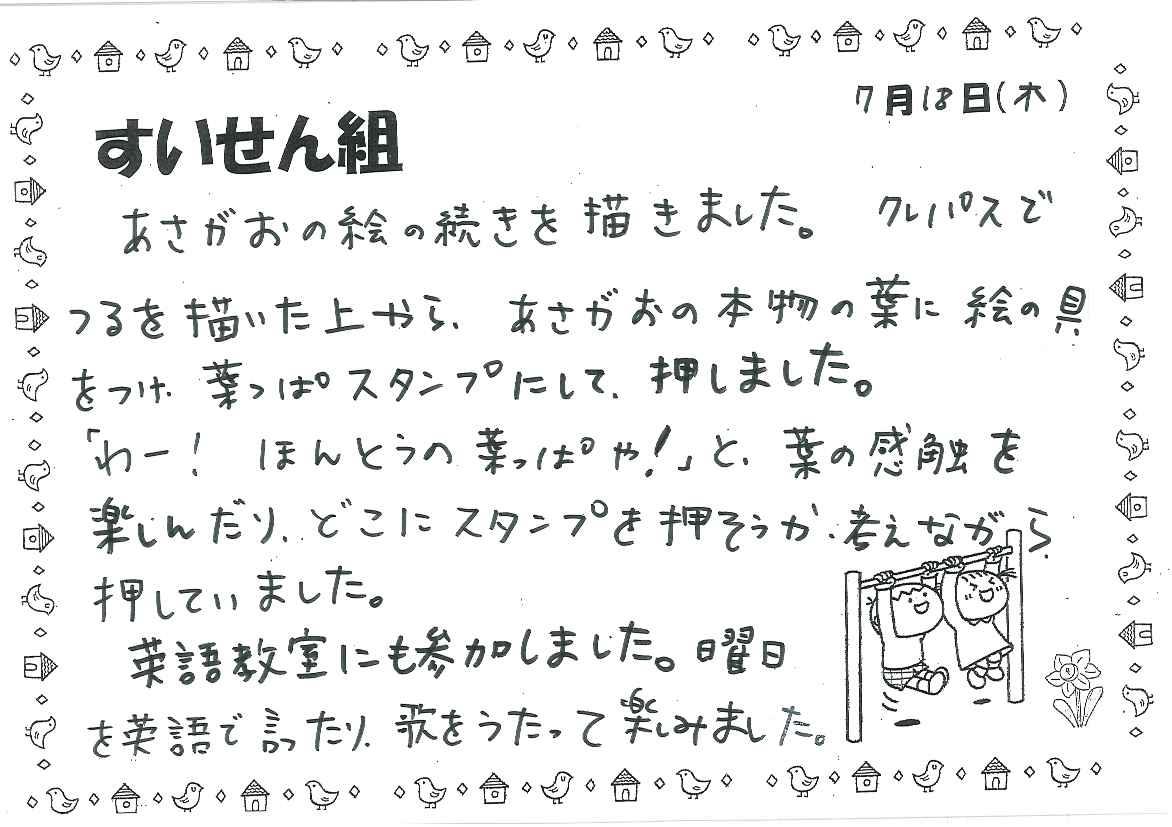 7月18日(木)
すいせん組
あさがおの絵の続きを描きました。 クレパスで
つるを描いた上から、あさがおの本物の葉に絵の具
をつけ、葉っぱスタンプにして、押しました。
「わー！ ほんとうの葉っぱや！」と、葉の感触を
楽しんだり、どこにスタンプを押そうか、考えながら、
押していました。
英語教室にも参加しました。曜日
を英語で言ったり、歌をうたって楽しみました。